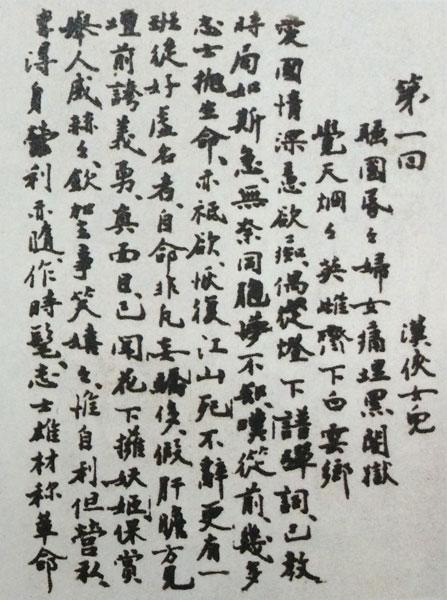 第一回 漢俠女兒
睡國昏々婦女痛埋黑闇獄
覺天烱々英雌齊下白雲鄉
愛國情深意欲癡、偶從燈下譜彈詞、已教
時局如斯急、無奈同胞夢不知、嘆從前、幾多
志士拋生命、亦祗欲恢復江山死不辭、更有一
班徒好虛名者、自命非凡妄驕侈、假肝膽方見
壇前誇義勇、真面目已聞花下擁妖姬、保賞
舉人威赫々、欽加主事笑嬉々、惟自利、但營私、
得身榮利亦隨、作時髦、志士雄材稱革命